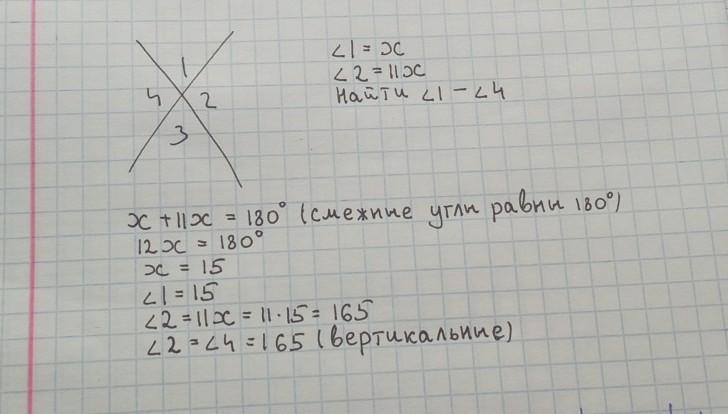 1
4 2
3
∠1 = x
∠2 = 11x
Найти ∠1 - ∠4
x + 11x = 180° (смежние угли равни 180°)
12x = 180°
x = 15
∠1 = 15
∠2 = 11x = 11·15 = 165
∠2 = ∠4 = 165 (вертикальние)